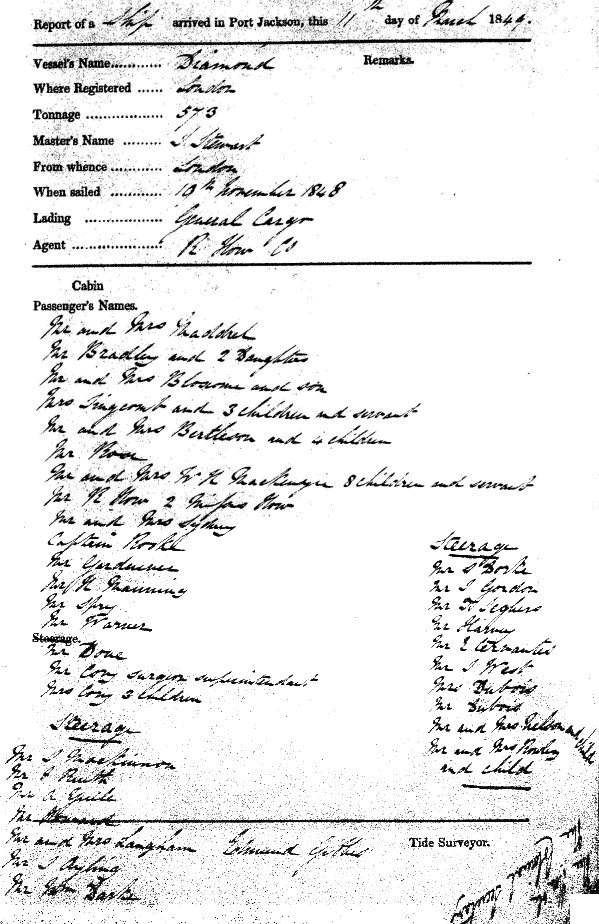 Report of a Ship arrived in Port Jackson, this 11th day of March 1849.
Vessel's Name............ Diamond
Remarks.
Where Registered ...... London
Tonnage .................... 573
Master's Name ......... J. Stewart
From whence ............ London
When sailed ............ 19th November 1848
Lading .................. General Cargo
Agent ..................... R How Co
Cabin
Passenger's Names.
Mr and Mrs Maddrel
Mr Bradley and 2 Daughters
Mr and Mrs Blosome and son
Mrs and 3 children and servant
Mr and Mrs Bertleson and 4 children
Mr Rose
Mr and Mrs W H Mackenzie 8 children and servant
Mr R How 2 Misses How
Mr and Mrs Sydney
Captain Rooke
Mr Gardener
Mr H Manning
Mr Spry
Mr Warner
Steerage.
Mr Done
Mr Cory surgeon superintendent
Mrs Cory 3 children
Steerage
Mr J Mackinnon
Mr J
Mr A
Mr
Mr and Mrs Langham
Mr J Ayling
Mr Wm Darke
Steerage
Mr
Mr J Gordon
Mr H Seghers
Mr Harvey
Mr
Mr J West
Mrs Dubois
Mr Dubois
Mr and Mrs Nelson and child
Mr and Mrs Rowley
and child
Edmund Gibbes
Tide Surveyor.